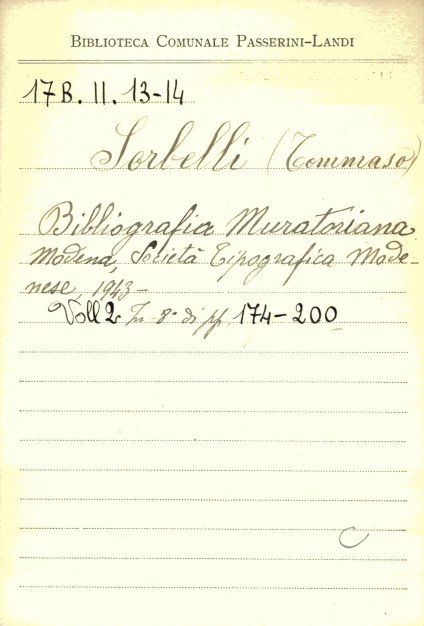 BIBLIOTECA COMUNALE PASSERINI-LANDI
17 B. II. 13-14
Sorbelli (Tommaso)
Bibliografia Muratoriana
Modena, Società Tipografica Mode-
nese, 1943-
Voll 2 In 8° di pp. 174-200
C